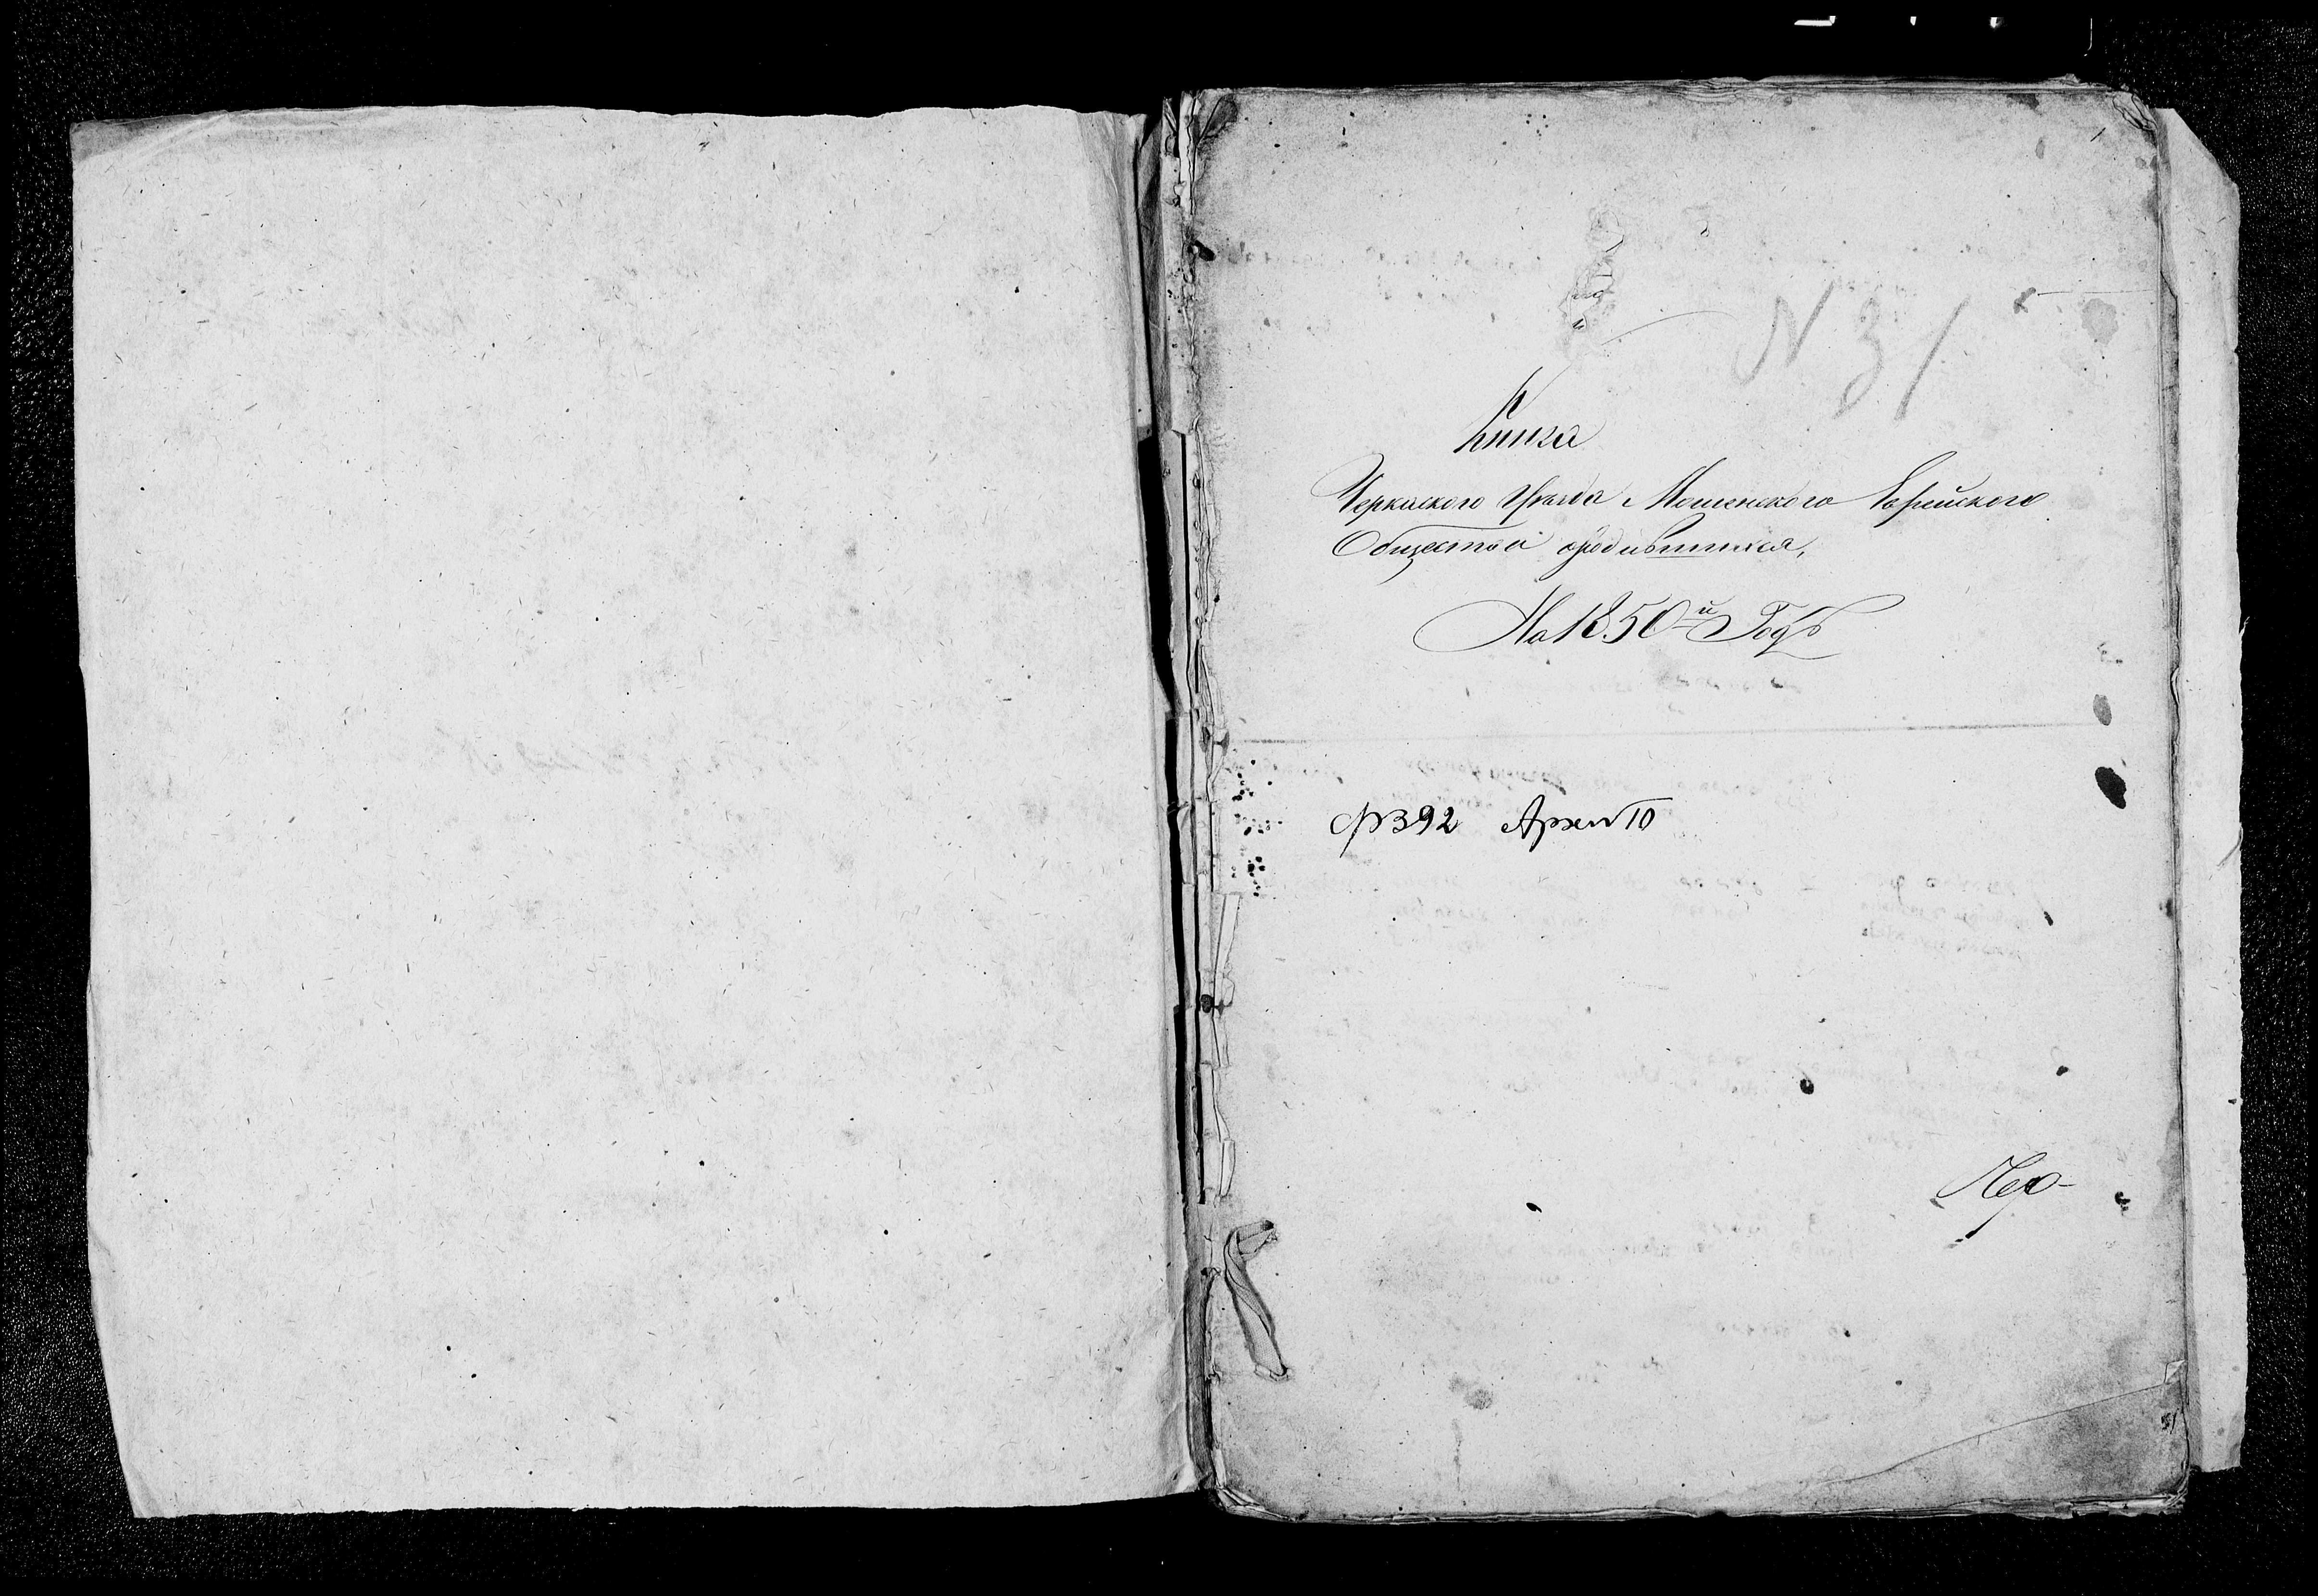 N 31
Книга
Черкаского Уѣзда Мошенского Еврейского
Общества о родившихся,
На 1850й Годъ
Ф 392 Архив 10
Чер-